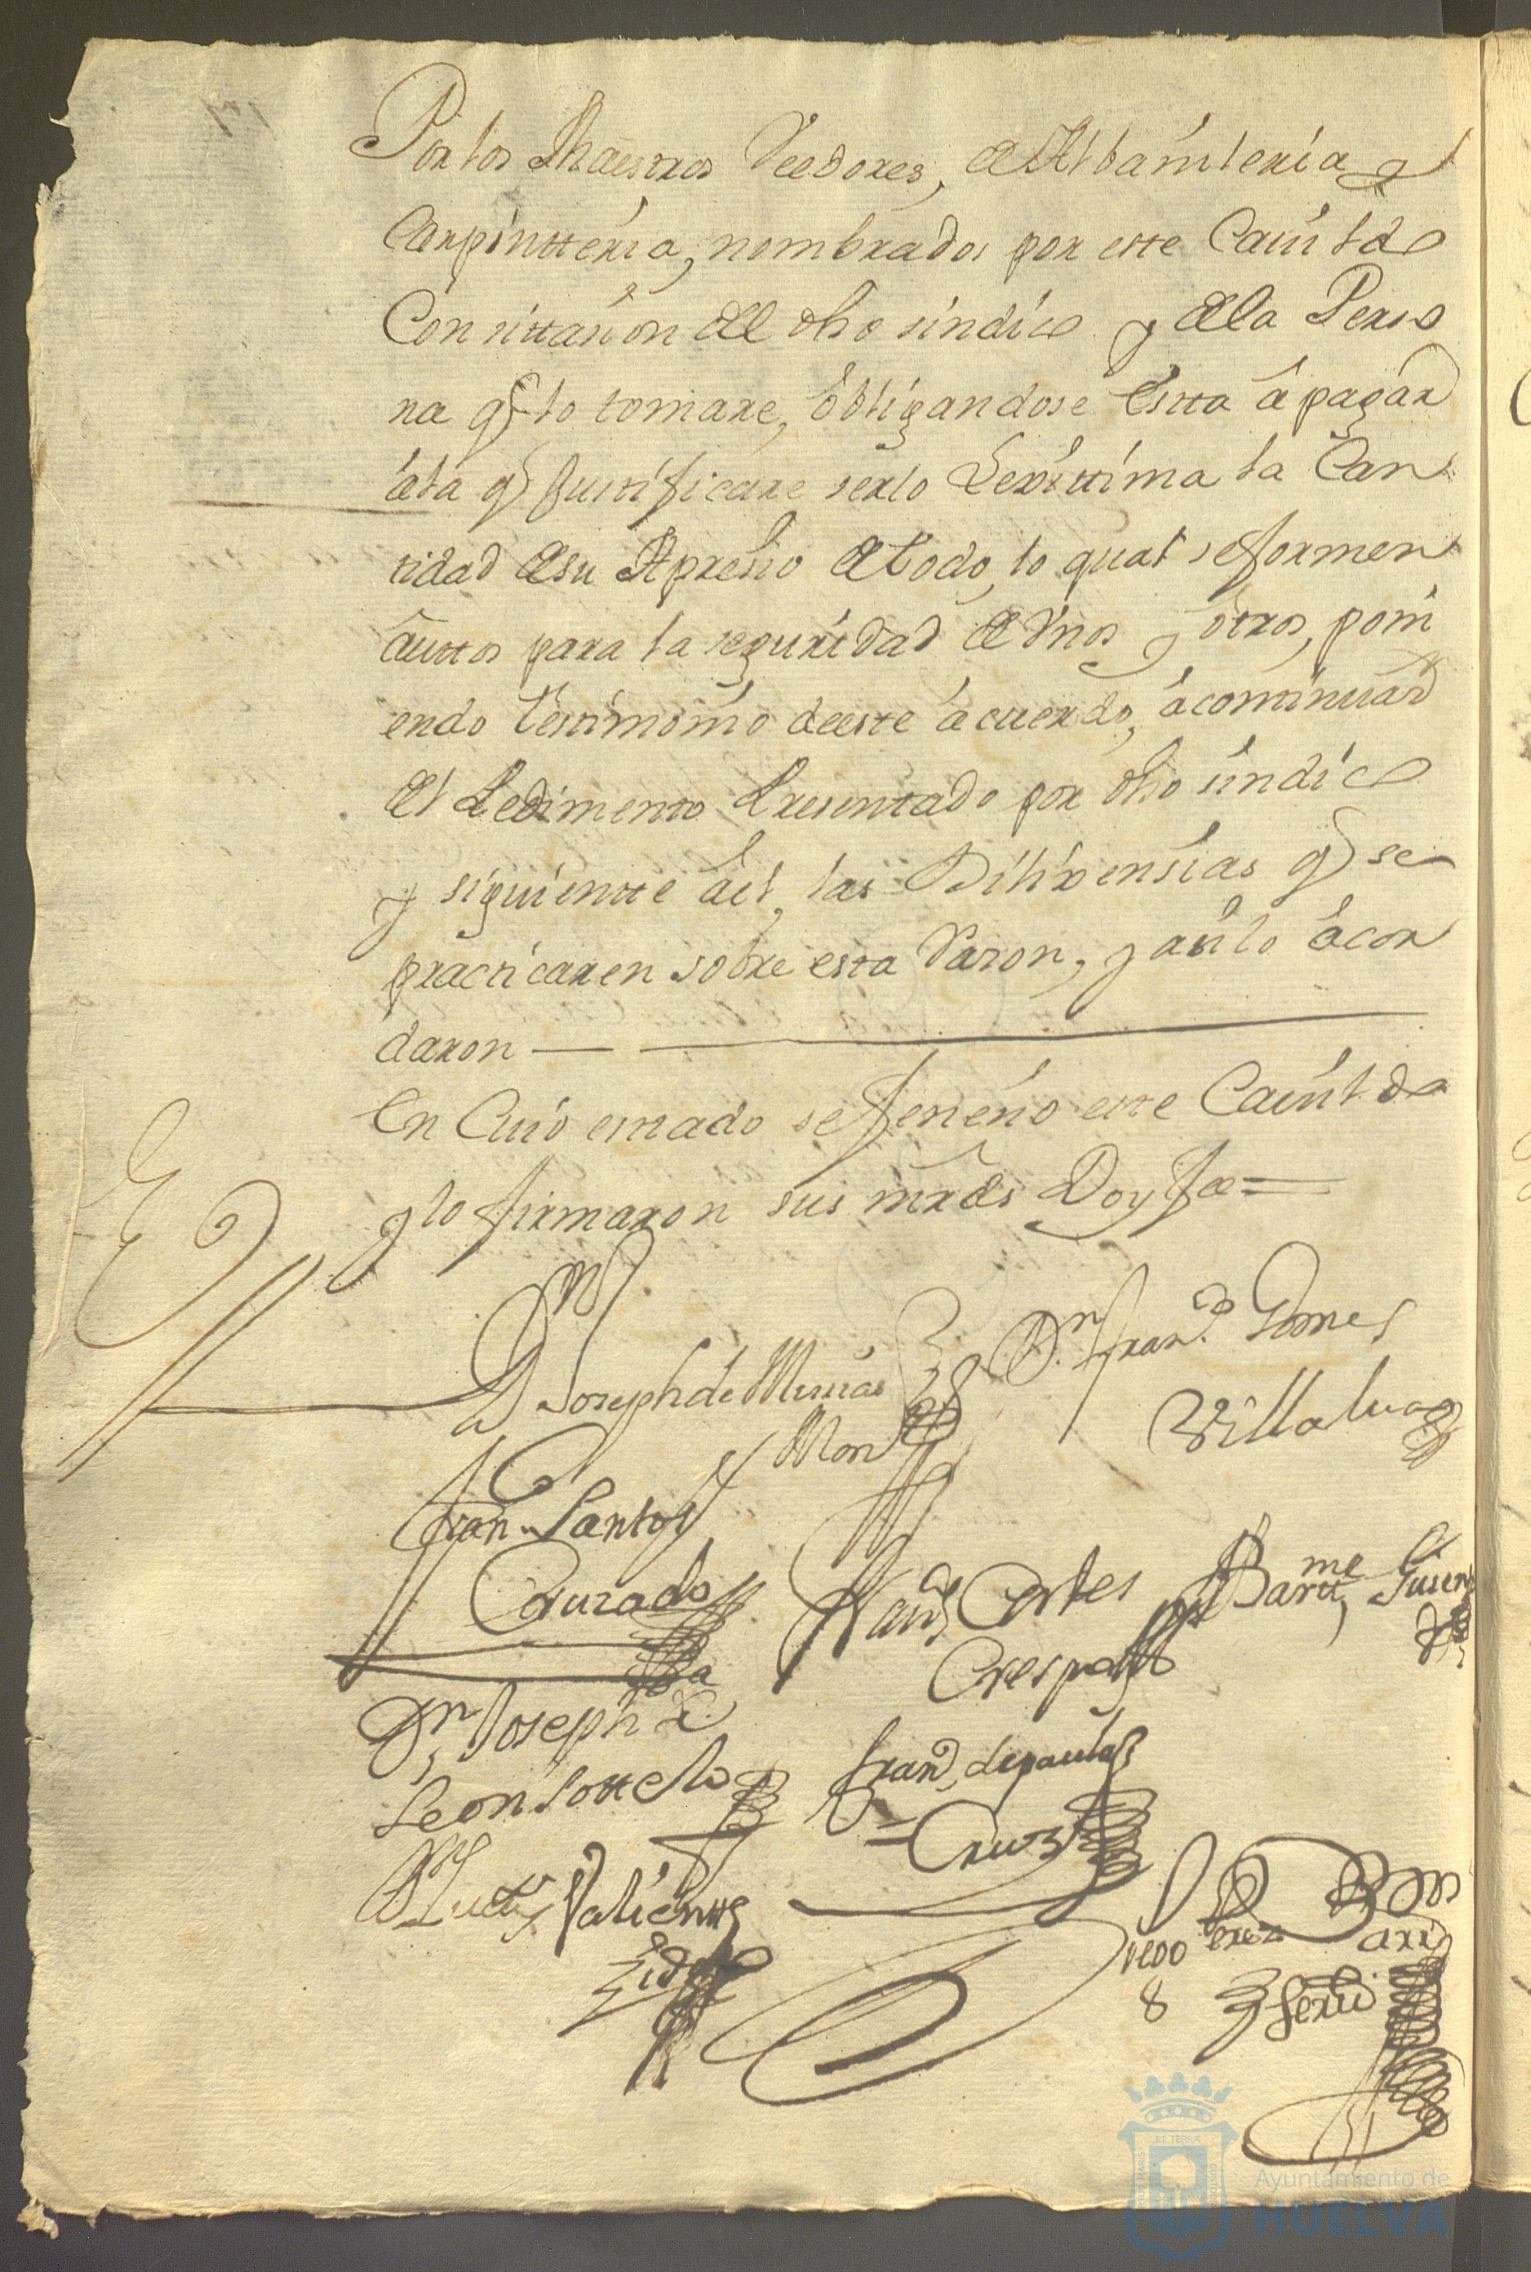 Por los Maestros Veedores, de Albañileria y
Carpintteria, nombrados por este Cauildo
Con sittazion del dho sindico y de la Perso
na q lo tomare, obligandose estta â pagar
âla q Justificare serlo Lexittima la Can
tidad de su Apresio de todo, lo qual se formen
auttos para la seguridad de Vnos y otros, poni
endo testimonio deeste âcuerdo, âcontinuazn
del Pedimento Presentado por dho sindico
y siguientte âel, las Dilixensias q se
practicaren sobre esta Razon, y asi lo âcor
daron
En Cuio estado se feneció este Cauildo
y lo firmaron sus mrds Doy fee =
Dn Joseph de
Mon
Dn Franco Gomes
Villalua
Fran Santos
Cortes
Crespo
Bartme
Dn Joseph de
Leon Sottelo
Franco de paula
= Cruz
Valiente
Perez
Ayuntamiento de
HUELVA